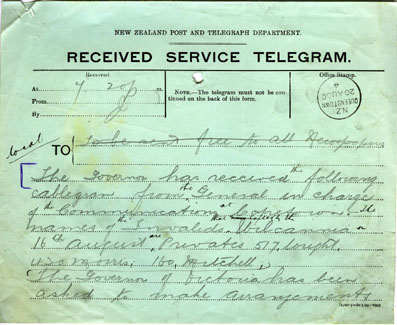 NEW ZEALAND POST AND TELEGRAPH DEPARTMENT.
RECEIVED SERVICE TELEGRAM.
Received. Office Stamp.
At 7 20p m.
From
By
NOTE.—The telegram must not be con-
tinued on the back of this form.
N.Z
QUEENSTOWN
20 AU 00
local
TO To be sent free to all Newspapers
The Governor has received the following
cablegram from the General in charge
of the Communication at Capetown. The
names of the Invalids. Wilcannia
16th August are Privates 517, Wright,
Moore, 160, Mitchell,
The Governor of Victoria has been
asked to make arrangements